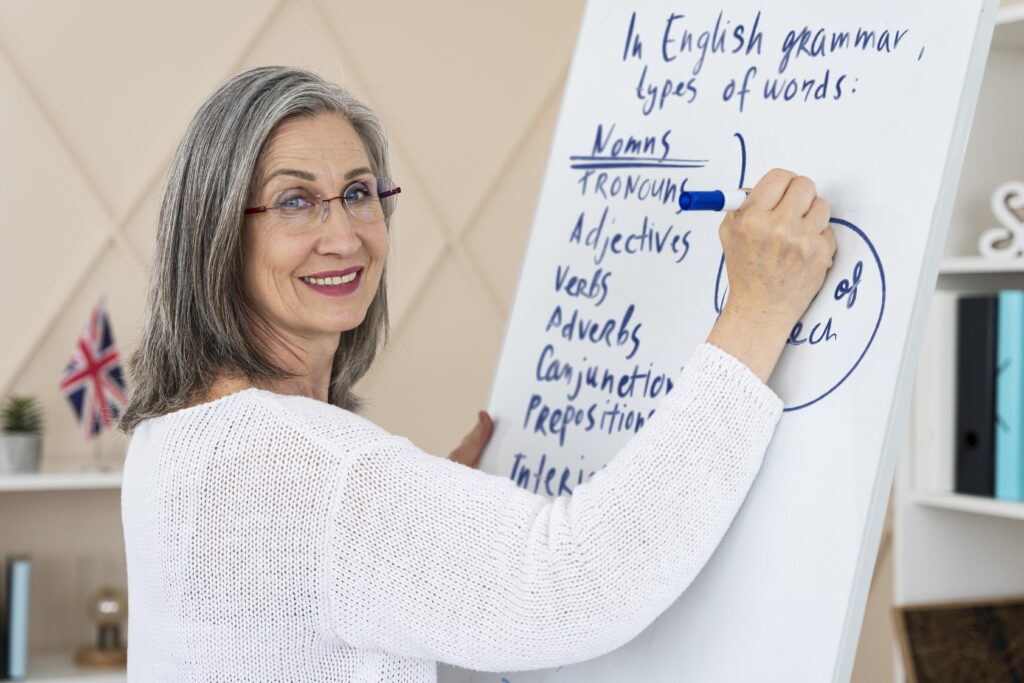 In English grammar,
types of words:
Nomns
PRONOUNS
Adjectives
Verbs
Adverbs
Conjunction
Prepositions
of